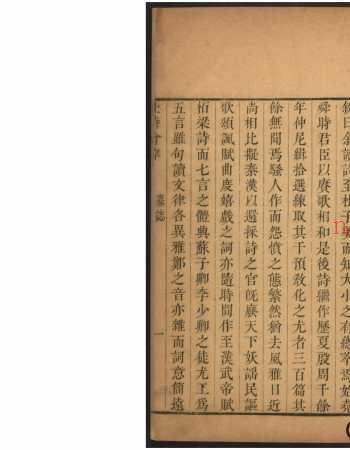 敘曰余讀詩至杜子美而知大小之有總萃焉始堯
舜時君臣以賡歌相和是後詩繼作歷夏殷周千餘
年仲尼緝拾選練取其干預教化之尤者三百篇其
餘無聞焉騷人作而怨憤之態繁然猶去風雅日近
尚相比擬秦漢以還採詩之官旣廢天下妖謠民謳
歌頌諷賦曲度嬉戲之詞亦隨時間作至漢武帝賦
栢梁詩而七言之體典蘇子卿李少卿之徒尤工爲
五言雖句讀文律各異雅鄭之音亦雜而詞意簡遠
墓誌
一